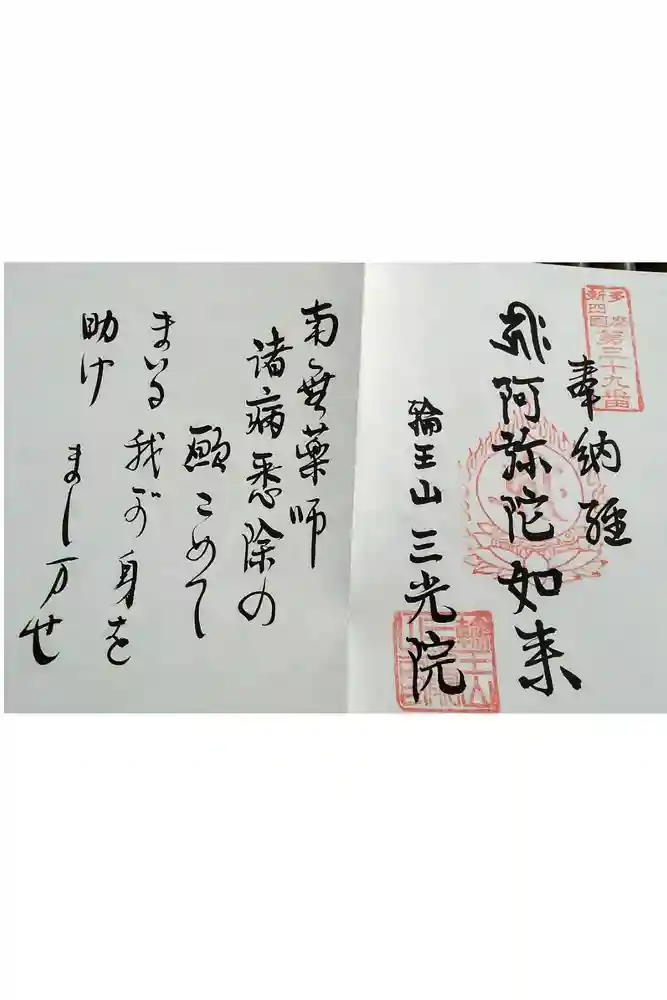 多摩
新四国
第三十九番
奉納経
阿弥陀如来
輪王山 三光院
南無薬師
諸病悉除の
願こめて
まいる我が身を
助け まし万せ